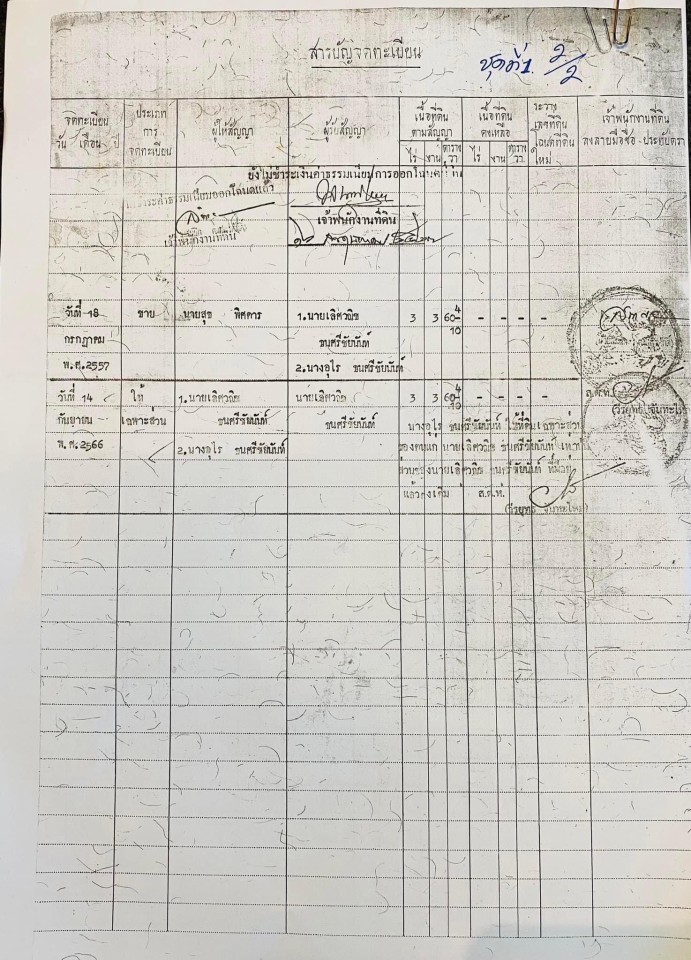 สารบัญจดทะเบียน
ชุดที่ 1. 2/2
จดทะเบียน
วัน เดือน ปี
ประเภท
การ
จดทะเบียน
ผู้ให้สัญญา
ผู้รับสัญญา
เนื้อที่ดิน
ตามสัญญา
ไร่ งาน ตาราง วา
เนื้อที่ดิน
คงเหลือ
ไร่ งาน ตาราง วา
ระวาง
เลขที่ดิน
โฉนดที่ดิน
ใหม่
เจ้าพนักงานที่ดิน
ลงลายมือชื่อ-ประทับตรา
ยังไม่ชำระเงินค่าธรรมเนียมการออกโฉนด
ชำระค่าธรรมเนียมออกโฉนดแล้ว
เจ้าพนักงานที่ดิน
เจ้าพนักงานที่ดิน
วันที่ 18 ขาย นายสุข พิศดาร 1.นายเลิศวณิช 3 3 60 4/10 - - - -
กรกฎาคม ธนศรีชัยนันท์
พ.ศ.2557 2.นางอุไร ธนศรีชัยนันท์
วันที่ 14 ให้ 1.นายเลิศวณิช นายเลิศวณิช 3 3 60 4/10 - - - -
กันยายน เฉพาะส่วน ธนศรีชัยนันท์ ธนศรีชัยนันท์
พ.ศ.2566 2.นางอุไร ธนศรีชัยนันท์
นางอุไร ธนศรีชัยนันท์ ให้ที่ดินเฉพาะส่วน
ของตนแก่ นายเลิศวณิช ธนศรีชัยนันท์ เท่านั้น
ส่วนของนายเลิศวณิช ธนศรีชัยนันท์ ที่มีอยู่
แล้วคงเดิม ส.ต.ท.
ส.ต.ท.